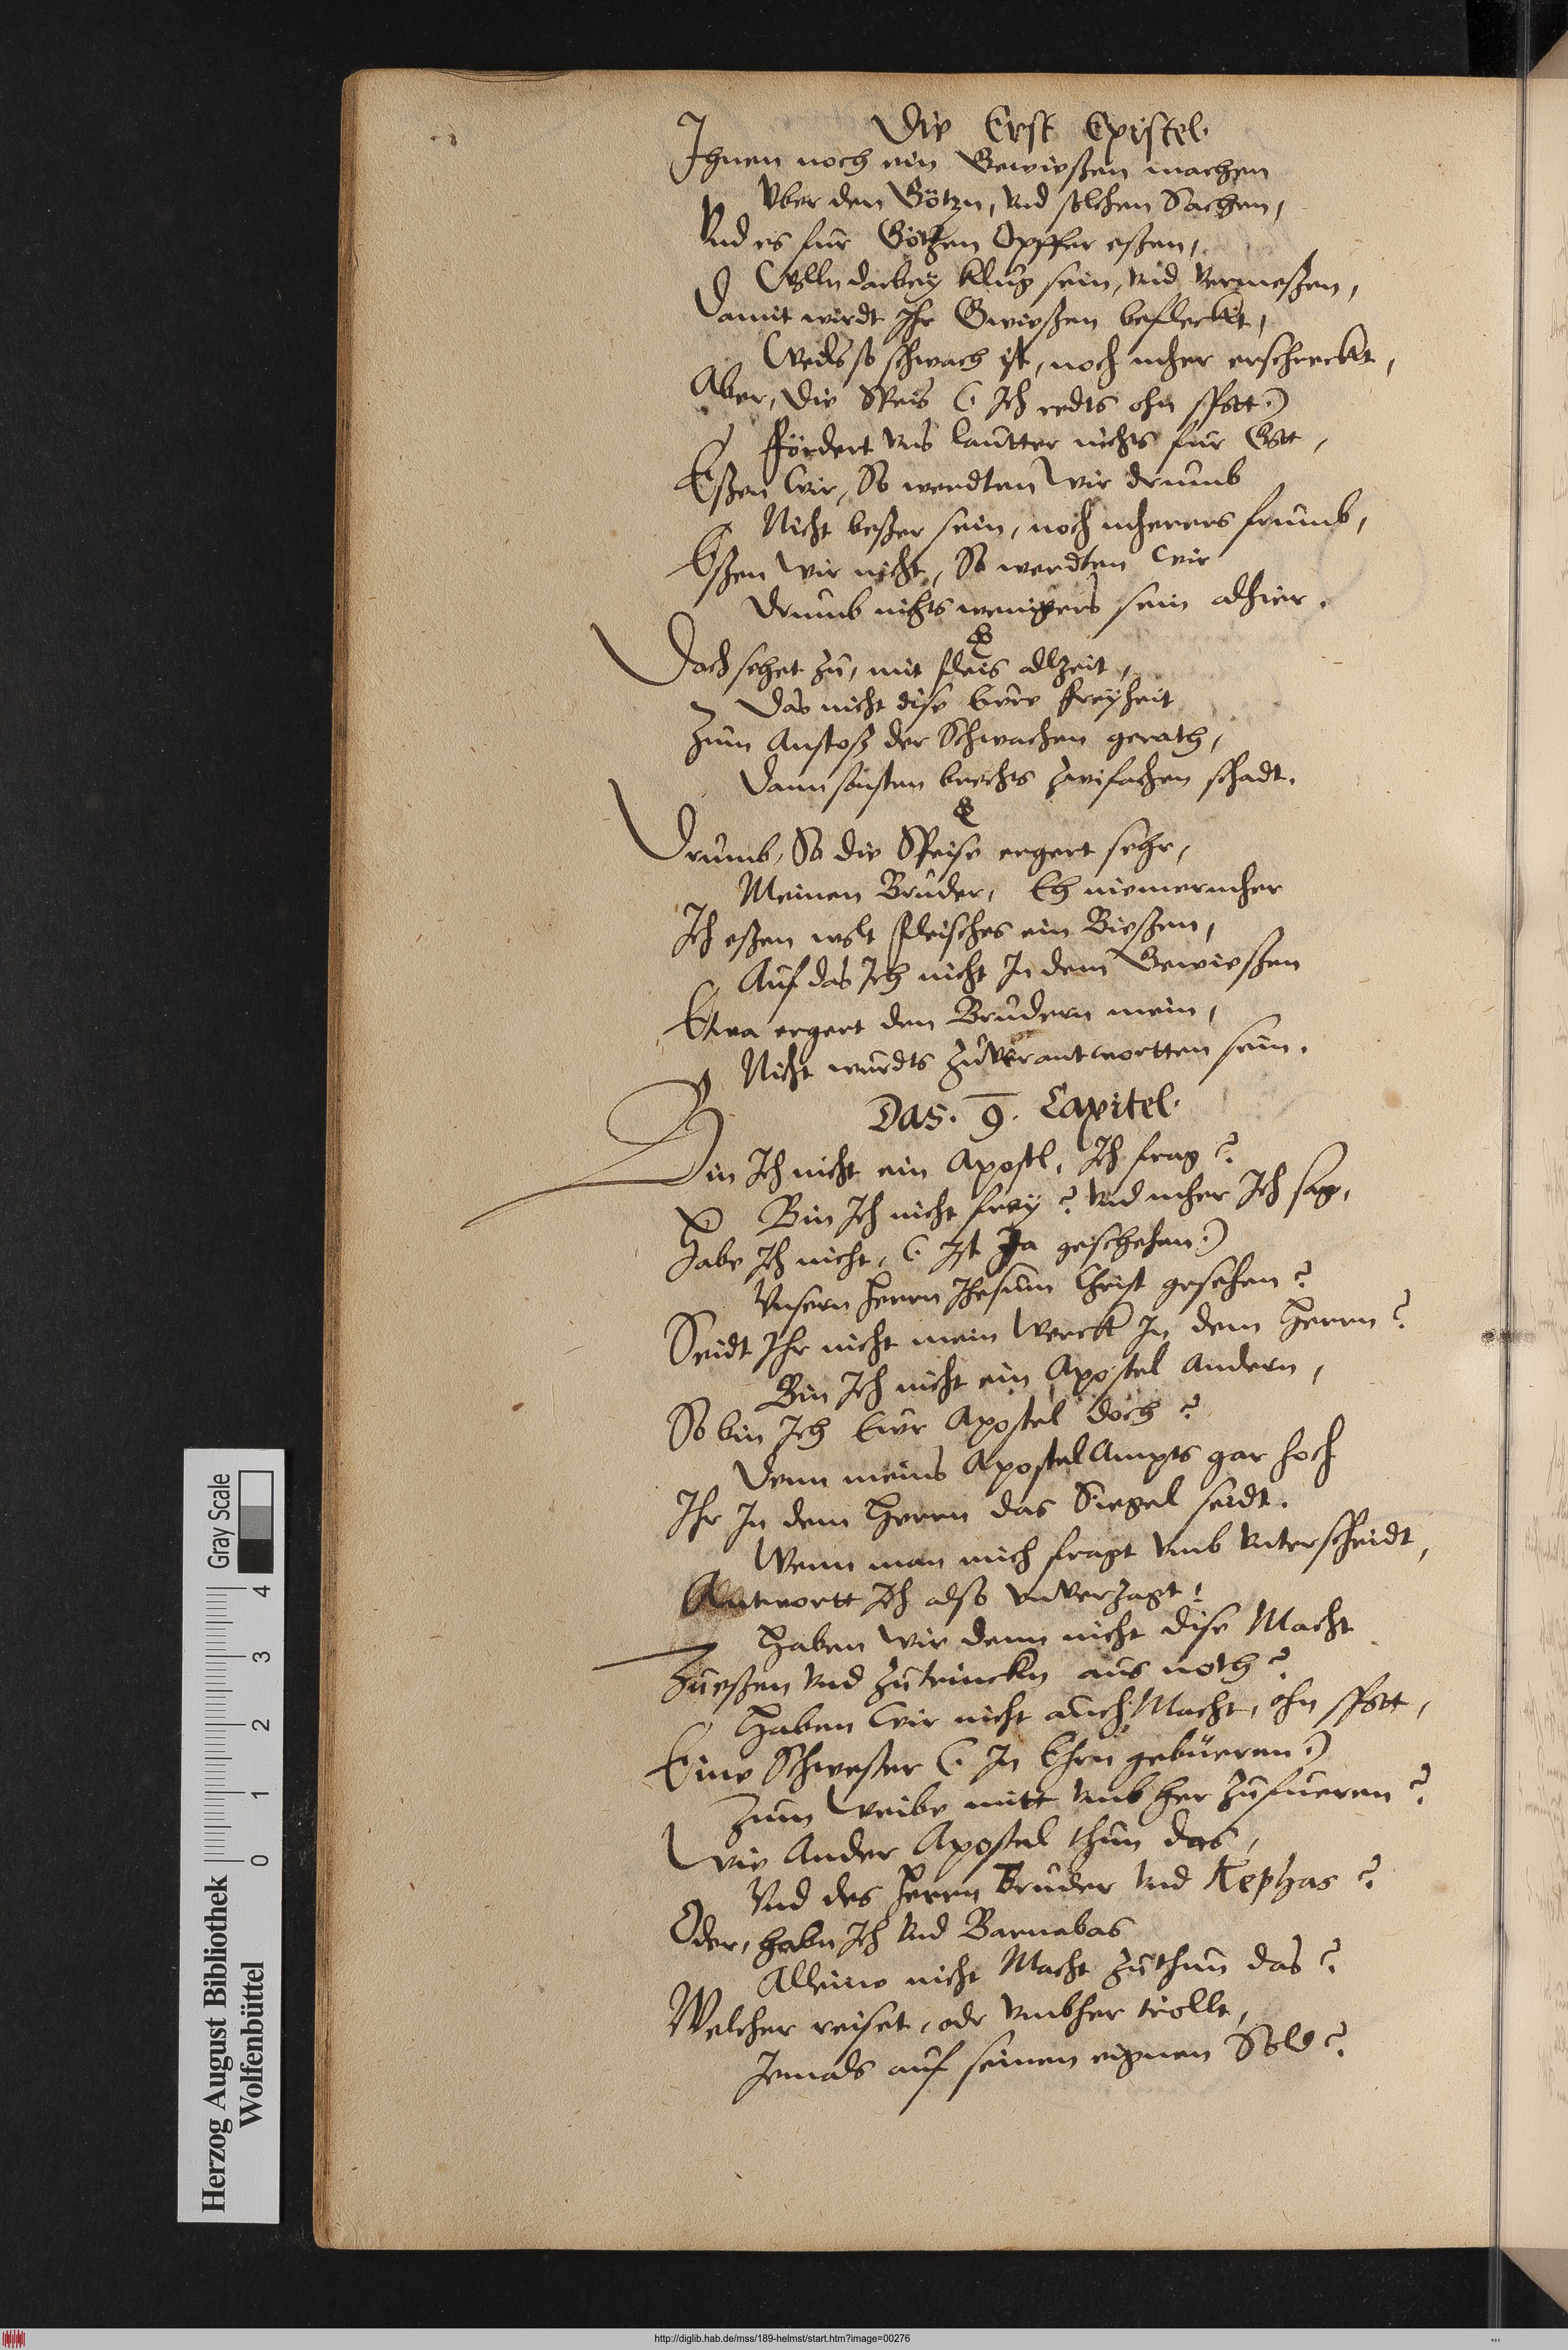 Die Erst Epistel.
Ihnen noch ein Gewießen machen
Vber den Götzn, vnd solchen Sachen,
Vnd es fur Götzen Opffer eßen,
Wolln darbey klug sein, vnd vermeßen,
Damit wirdt Ihr Gwießen befleckt,
Weils so schwach ist, noch meher erschreckt,
Aber, die Speis (: Ich redts ohn spott :)
Fördert vns lautter nichts fur Gott,
Eßen wir, So werdten wir drumb
Nicht beßer sein, noch meherers frumb,
Eßen wir nicht, So werdten wir
Drumb nichts wenigers sein alhier.
Doch sehet zu, mit fleis allzeit,
Das nicht dise Eure freyheit
Zum Anstoß der Schwachen gerath,
Dann sonsten brechts zwifachen schadt.
Drumb, So die Speise ergert sehr,
Meinen Bruder, Eh niemermeher
Ich eßen wolt fleisches ein Bießen,
Auf das Ich nicht In dem Gewießen
Etwa ergert den Brudern mein,
Nicht wurdts zuverantwortten sein.
Das. 9. Capitel.
Bin Ich nicht ein Apostl, Ich frag?
Bin Ich nicht frey? vnd meher Ich sag,
Habe Ich nicht, (: Ist Ja geschehen :)
Vnsern Herrn Jhesum Christ gesehen?
Seidt Ihr nicht mein Werck In dem Herrn?
Bin Ich nicht ein Apostel Andern,
So bin Ich Ewr Apostel doch?
Denn meins Apostel Ampts gar hoch
Ihr In dem Herrn das Siegel seidt.
Wenn man mich fragt vmb vnterscheidt,
Antwortt Ich also vnverzagt:
Haben wir denn nicht dise Macht
Zueßen vnd zutrinckn aus noth?
Haben wir nicht auch Macht, ohn spott,
Eine Schwester (: In Ehrn gebüeren :)
Zum Weibe mitt vmbher zufueren?
Wie Ander Apostel thun das,
Vnd des Herrn Bruder vnd Kephas?
Oder, habn Ich vnd Barnabas
Alleine nicht Macht zuthun das?
Welcher reiset, odr vmbher trollt,
Jemals auf seinen eignen Sold?
Herzog August Bibliothek
Wolfenbüttel
0 1 2 3 4
Gray Scale
http://diglib.hab.de/mss/189-helmst/start.htm?image=00276